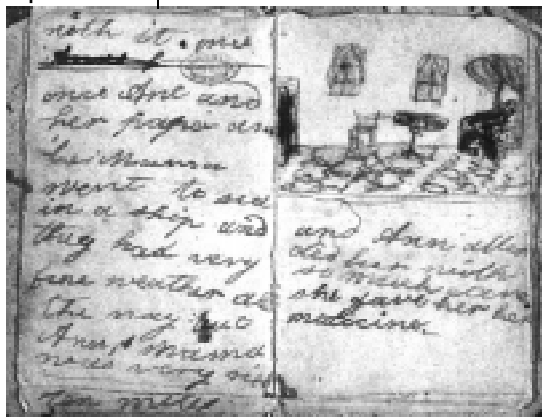 with it.
once Ane and
her papa an
her Mama
went to sea
in a ship and
they had very
fine weather al
the way but
Anns mama
was very sic
and Ann atten
ded her with
so much care
she gave her her
medicine.